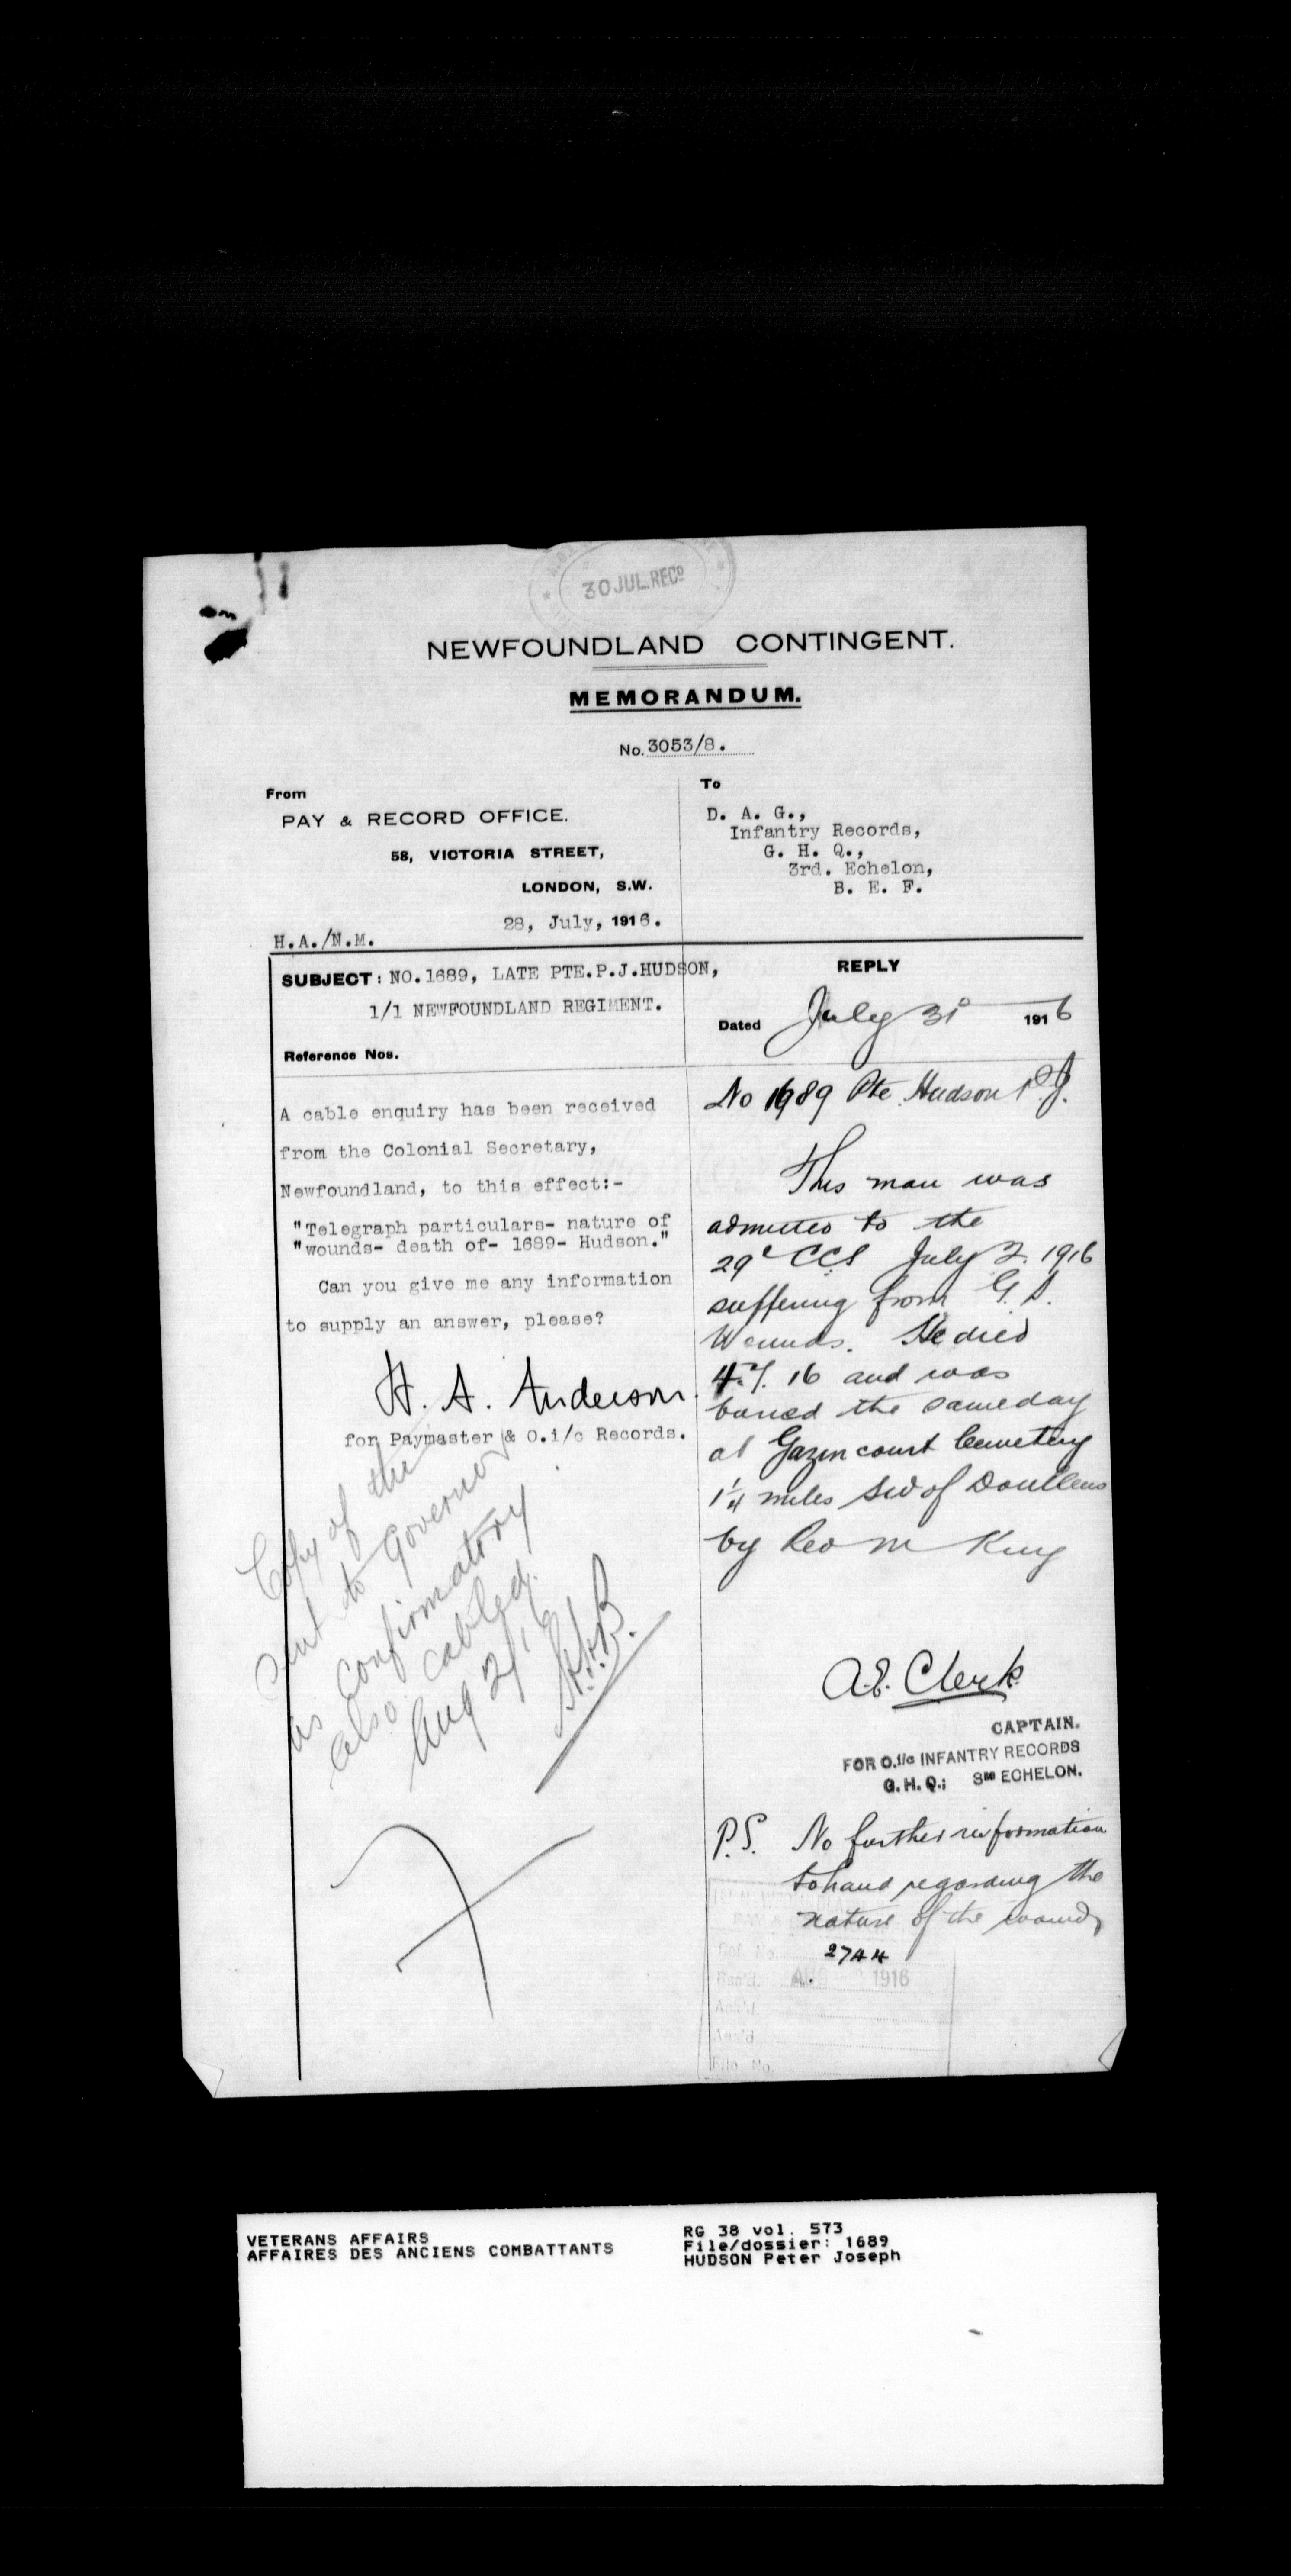 30 JUL. RECD
NEWFOUNDLAND CONTINGENT.
MEMORANDUM.
No. 3053/8.
From
PAY & RECORD OFFICE.
58, VICTORIA STREET,
LONDON, S.W.
28, July, 1916.
H.A./N.M.
To
D. A. G.,
Infantry Records,
G. H. Q.,
3rd. Echelon,
B. E. F.
SUBJECT: NO.1689, LATE PTE.P.J.HUDSON,
1/1 NEWFOUNDLAND REGIMENT.
Reference Nos.
A cable enquiry has been received
from the Colonial Secretary,
Newfoundland, to this effect:-
"Telegraph particulars- nature of
"wounds- death of- 1689- Hudson."
Can you give me any information
to supply an answer, please?
H. A. Anderson
for Paymaster & O.i/c Records.
Copy of the
sent to Governor
as confirmatory
also cabled.
Aug 2/16
REPLY
Dated July 31 1916
No 1689 Pte Hudson P.J.
This man was
admitted to the
29 CCS July 2. 1916
suffering from G.S.
Wounds. He died
4.7.16 and was
buried the same day
at Gazincourt Cemetery
1¼ miles SW of Doullens
by Rev M King
A.E. Clerk
CAPTAIN.
FOR O.i/c INFANTRY RECORDS
G.H.Q.; 3RD ECHELON.
P.S. No further information
to hand regarding the
nature of the wounds
Ref. No. 2744
Rec'd. AUG 1916
Ack'd.
Ans'd.
File No.
VETERANS AFFAIRS
AFFAIRES DES ANCIENS COMBATTANTS
RG 38 vol. 573
File/dossier: 1689
HUDSON Peter Joseph